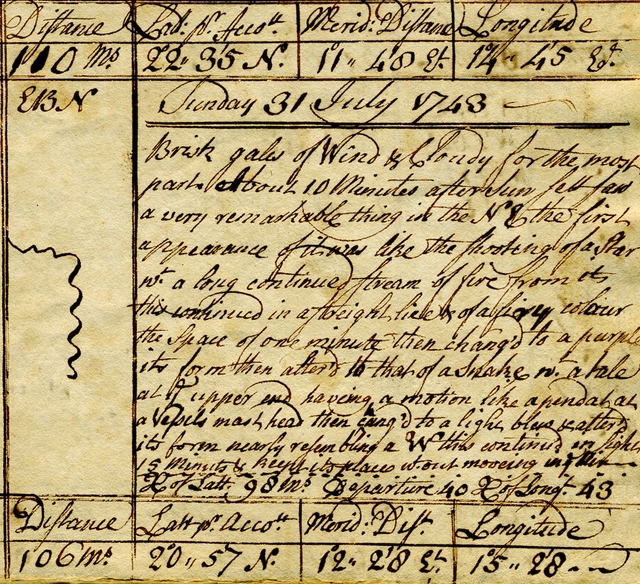 Distance Latt: pr. Acctt Merid: Distance Longitude
110 Ms 22„ 35 N. 11„ 48 Et. 14„ 45 Et.
EBN Sunday 31 July 1743
Brisk gales of Wind & Cloudy for the most
part About 10 Minutes after Sun sett saw
a very remarkable thing in the N E the first
appearance of it was like the shooting of a Star
wt. a long continued stream of fire from it
this continued in a streight line & of a firy colour
the space of one minute then chang'd to a purple
its form then alter'd to that of a snake wt. a tale
at ye upper end having a motion like a pendat at
a Vessels mast head then cang'd to a light blew & alter'd
its form nearly resembling a W this continued in sight
15 Minuts & keept its place wtout moveing
X of Latt. 98 Ms. Departure 40 X of Longt. 43
Distance Latt pr. Acctt Merid: Dist. Longitude
106 Ms. 20„ 57 N. 12„ 28 Et. 15„ 28